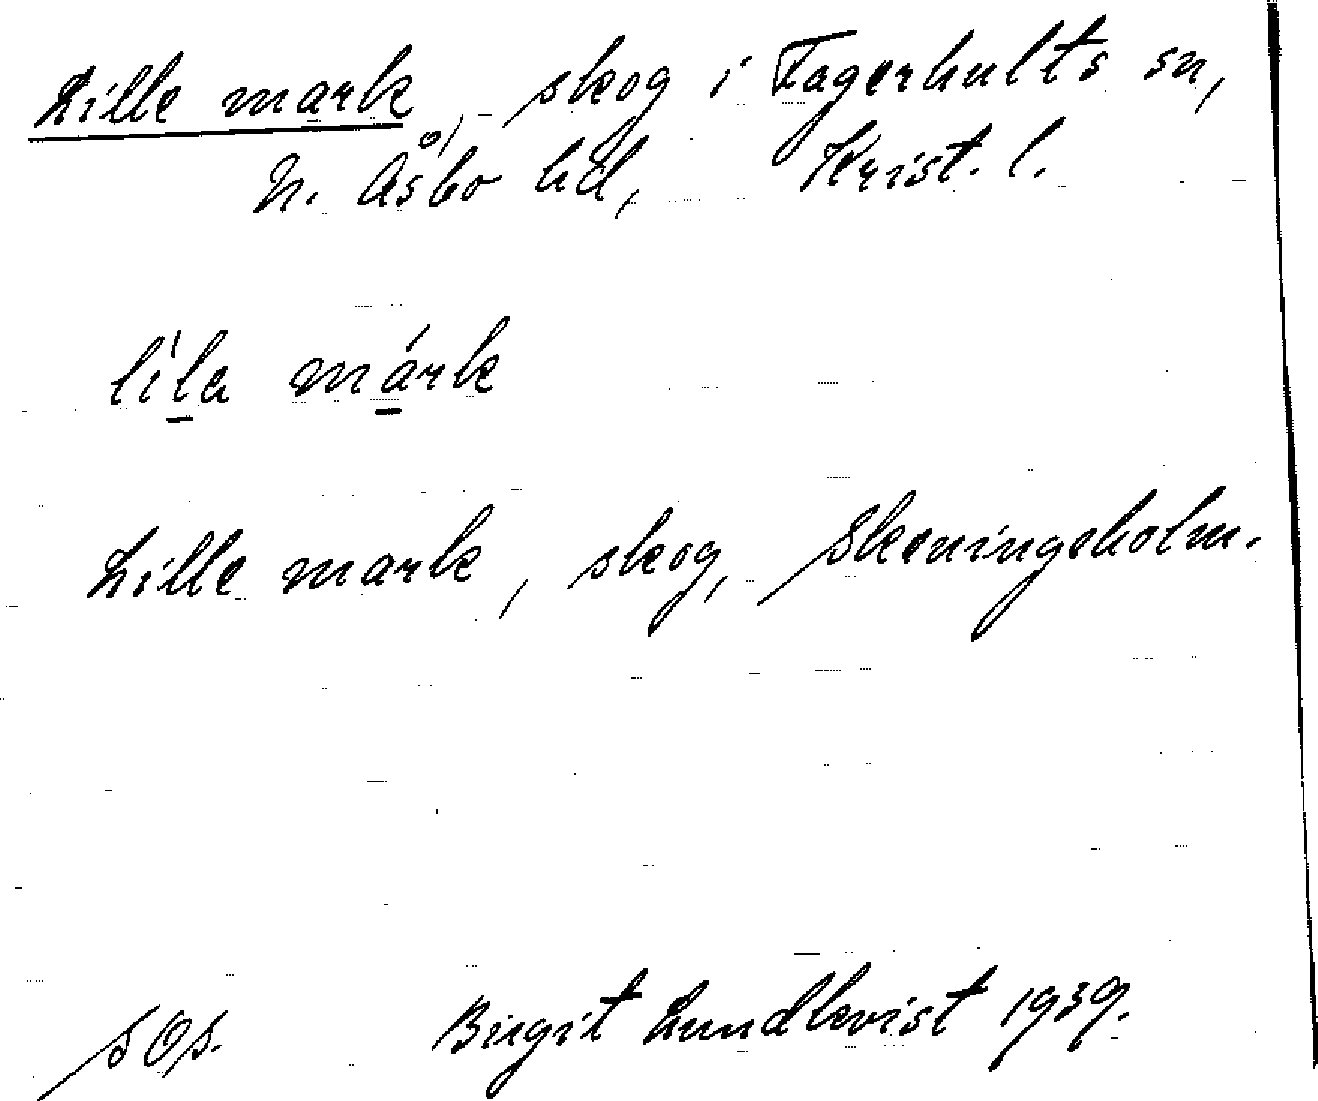 Lille mark, skog i Fagerhults sn,
N. Åsbo hd, Krist. l.
lila mark
Lille mark, skog, Skeningeholm.
SOs. Birgit Lundkvist 1939.